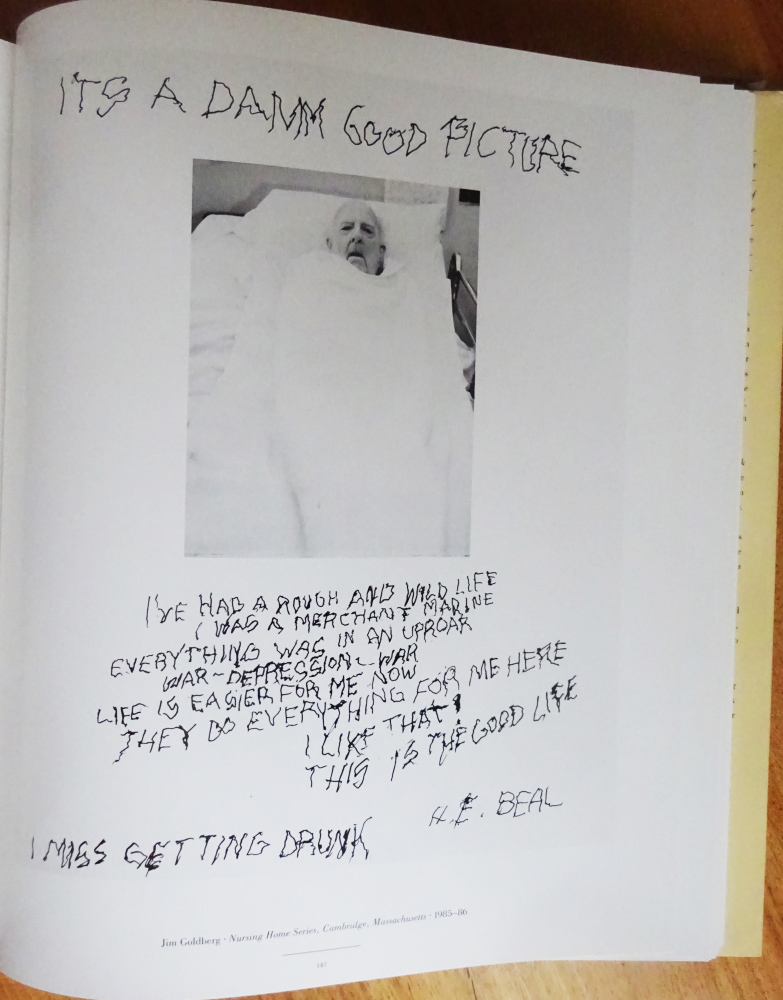 ITS A DAMM GOOD PICTURE
I'VE HAD A ROUGH AND WILD LIFE
I WAS A MERCHANT MARINE
EVERYTHING WAS IN AN UPROAR
WAR~DEPRESSION~WAR
LIFE IS EASIER FOR ME NOW
THEY DO EVERYTHING FOR ME HERE
I LIKE THAT!
THIS IS THE GOOD LIFE
H.E. BEAL
I MISS GETTING DRUNK
Jim Goldberg · Nursing Home Series, Cambridge, Massachusetts · 1985–86